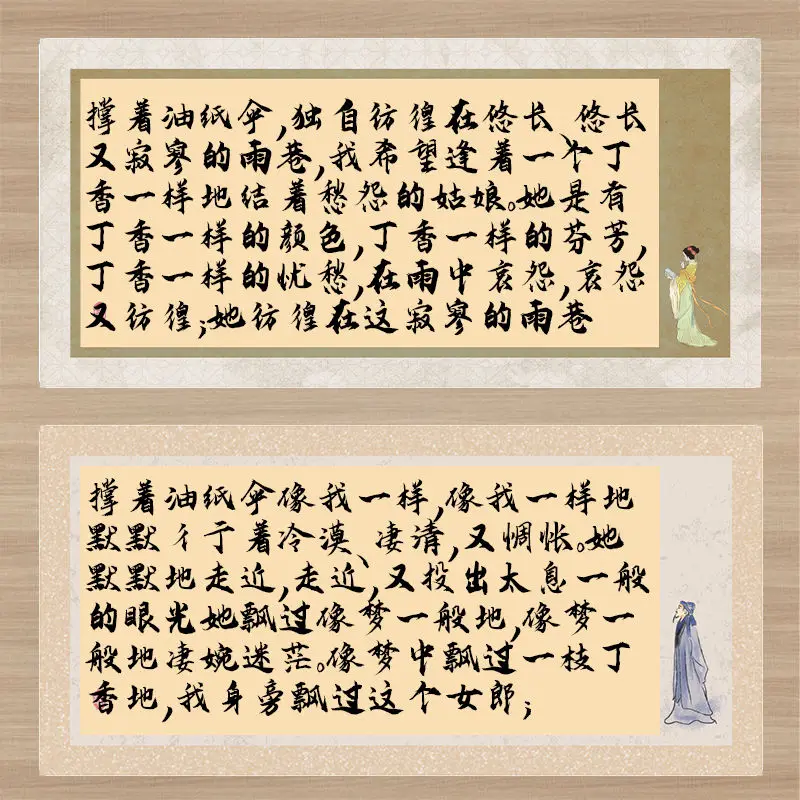 撑着油纸伞,独自彷徨在悠长、悠长
又寂寥的雨巷,我希望逢着一个丁
香一样地结着愁怨的姑娘。她是有
丁香一样的颜色,丁香一样的芬芳,
丁香一样的忧愁,在雨中哀怨,哀怨
又彷徨;她彷徨在这寂寥的雨巷
撑着油纸伞像我一样,像我一样地
默默彳亍着冷漠、凄清,又惆怅。她
默默地走近,走近,又投出太息一般
的眼光她飘过像梦一般地,像梦一
般地凄婉迷茫。像梦中飘过一枝丁
香地,我身旁飘过这个女郎;